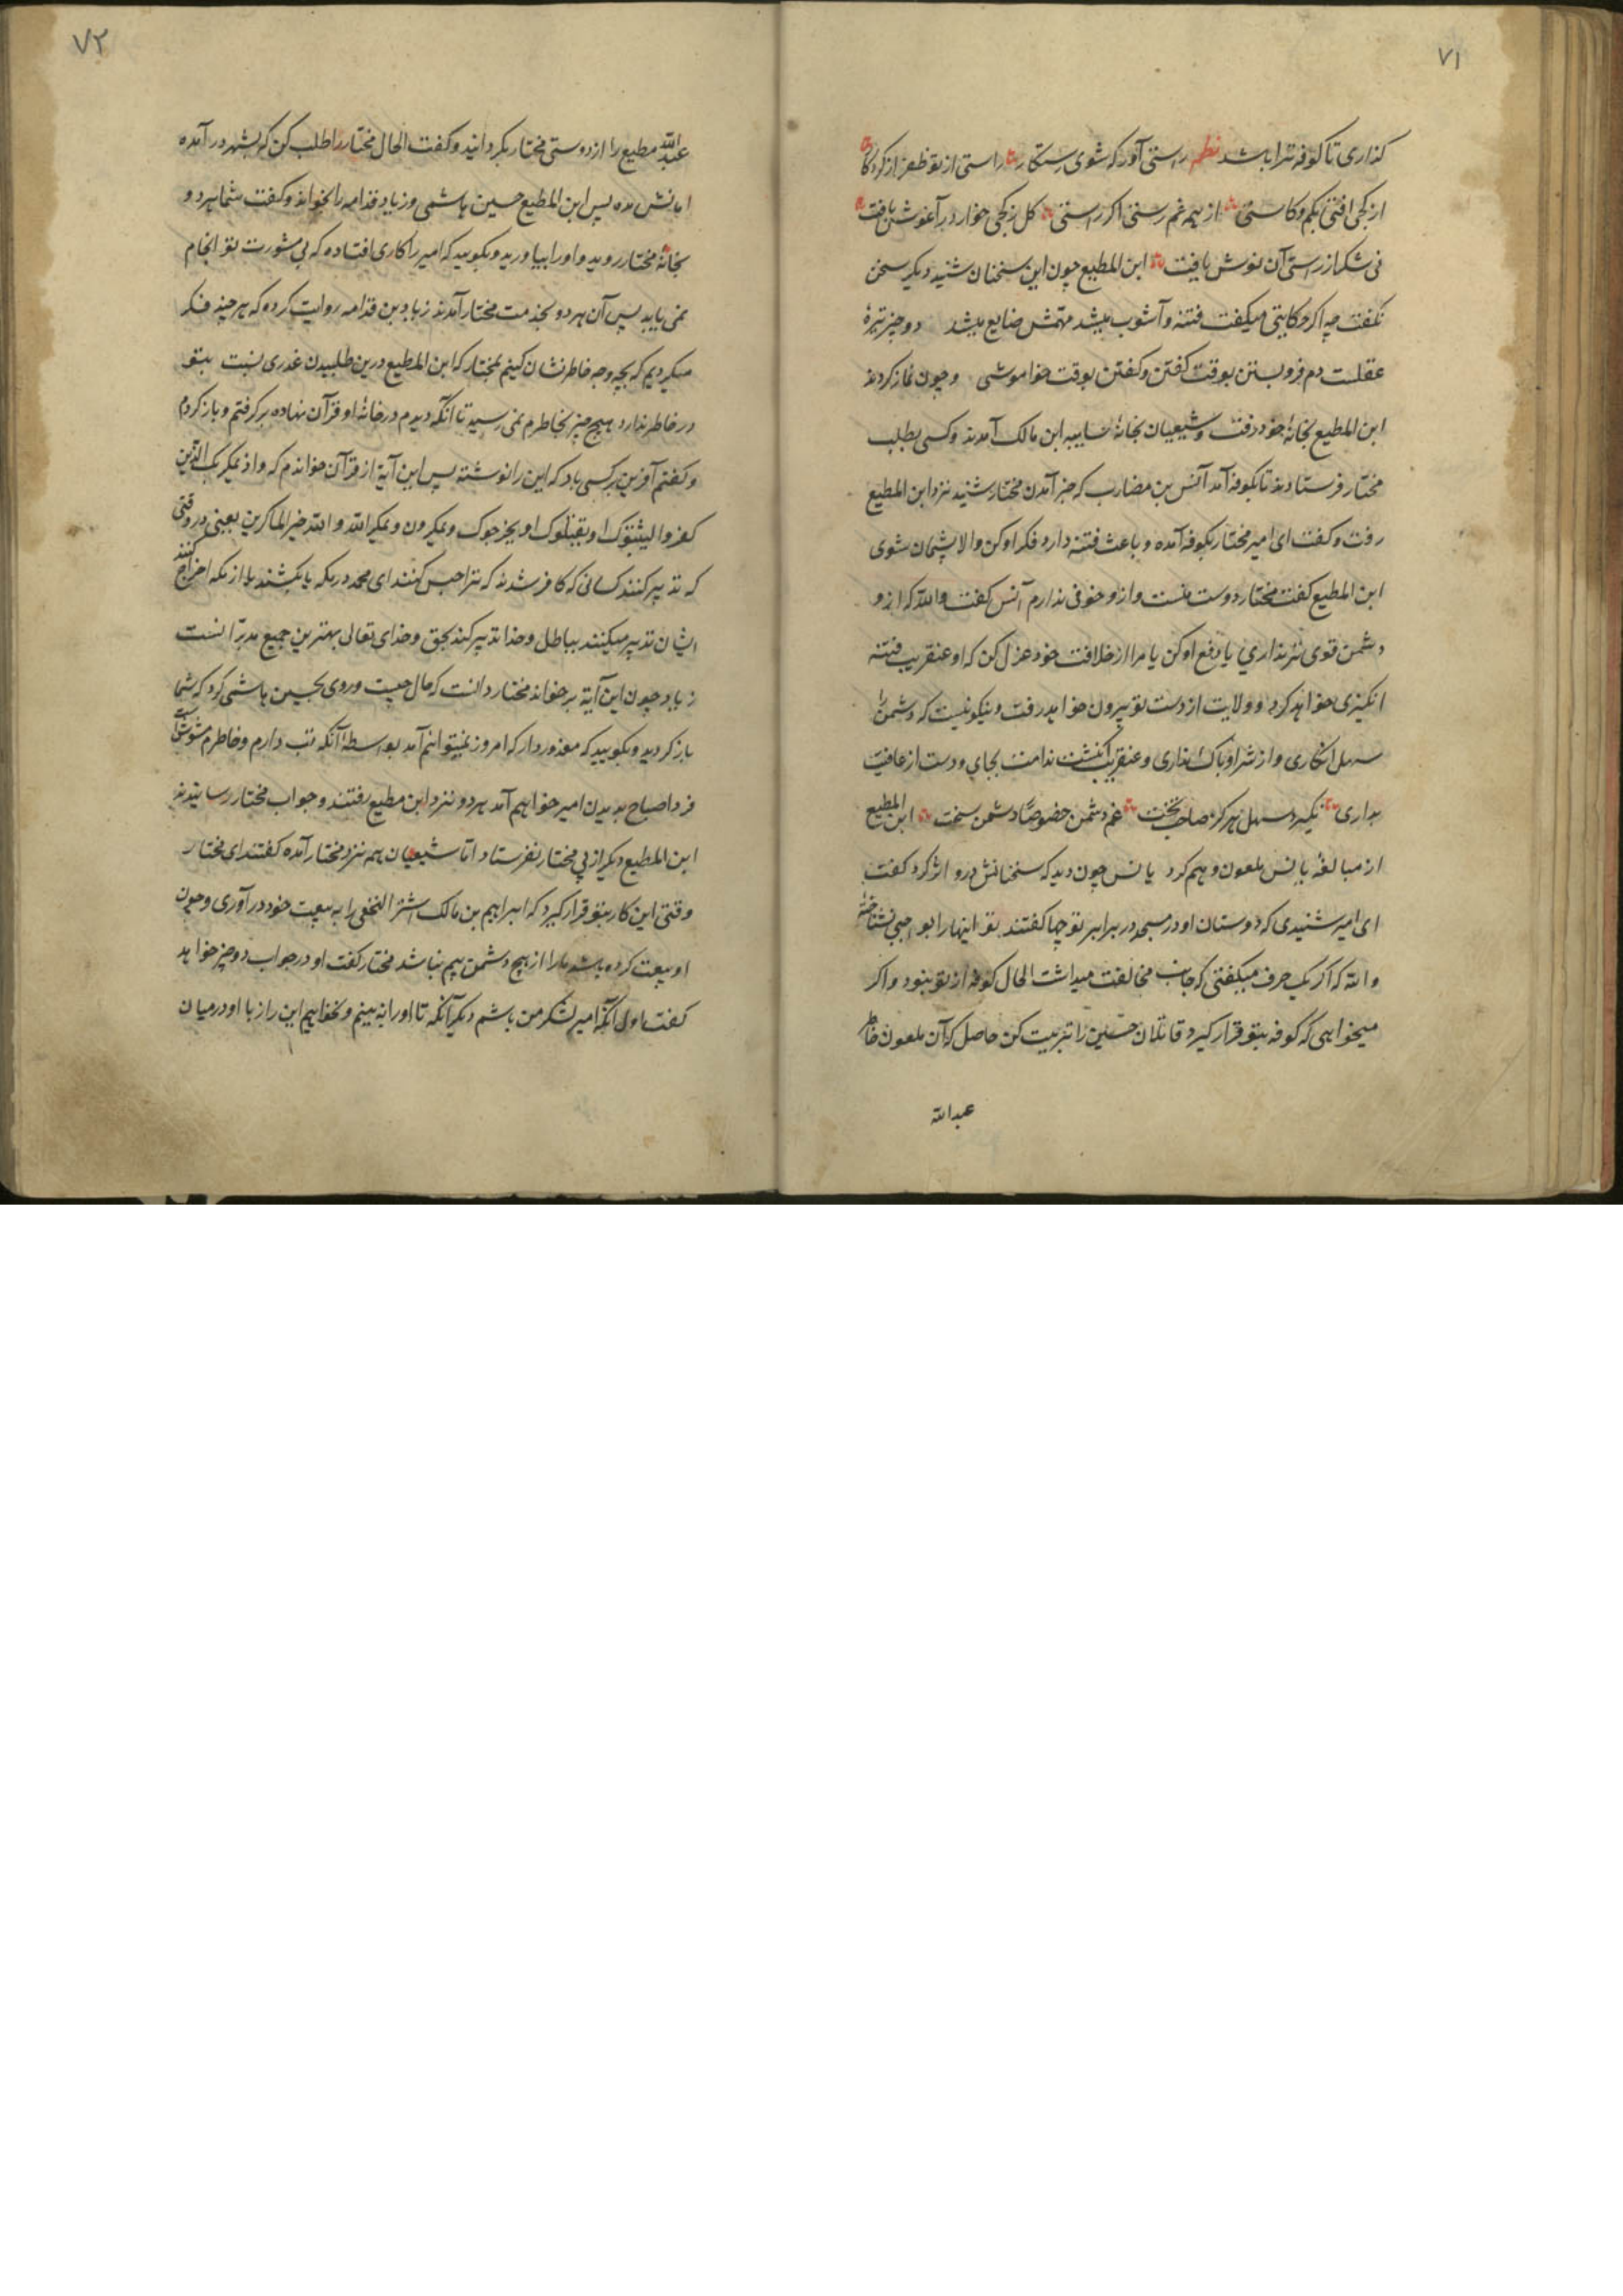 ۷۱
کذاری تا کوفه ترا باشد نظم راستی آور که شوی رستکار راستی از تو ظفر از کردکار
از کجی افتی بکم و کاستی از همه غم رستی اکر راستی کل ز کجی خار در آغوش یافت
نی شکر از راستی آن نوش یافت ابن المطیع چون این سخنان شنید دیکر سخن
نکفت چه اکر حکایتی میکفت فتنه و آشوب میشد مهمش ضایع میشد دو چیز تیرهٔ
عقلست دم فرو بستن بوقت کفتن و کفتن بوقت خواموشی و چون نماز کردند
ابن المطیع بخانهٔ خود رفت و شیعیان بخانهٔ سایبه ابن مالک آمدند و کسی بطلب
مختار فرستادند تا بکوفه آمد آنس بن مضارب که خبر آمدن مختار شنید نزد ابن المطیع
رفت و کفت ای امیر مختار بکوفه آمده و باعث فتنه دارد فکر او کن والا پشمان شوی
ابن المطیع کفت مختار دوست منست و ازو خوفی ندارم آنس کفت والله که ازو
دشمن قوی تر نداری یا دفع او کن یا مرا از خلافت خود عزل کن که او عنقریب فتنه
انکیزی خواهد کرد و ولایت از دست تو بیرون خواهد رفت و نیکو نیست که دشمن را
سهل انکاری و از شر او باک نداری و عنقریب انکشت ندامت بجای و دست از عافیت
بداری نکیرد سهل هر کز صاحب بخت غم دشمن خصوصاً دشمن سخت ابن المطیع
از مبالغهٔ یانس ملعون وهم کرد یانس چون دید که سخنانش درو اثر کرد کفت
ای امیر شنیدی که دوستان او در مسجد در برابر تو چها کفتند تو اینها را بواجبی نشناختهٔ
والله که اکر یک حرف میکفتی که جانب مخالفت میداشت الحال کوفه از تو نبود و اکر
میخواهی که کوفه بتو قرار کیرد قاتلان حسین را تربیت کن حاصل که آن ملعون خاطر
عبدالله
۷۲
عبدالله مطیع را از دوستی مختار بکردانید و کفت الحال مختار را طلب کن که بشهر در آمده
پس ابن المطیع حسین هاشمی و زیاد قدامه را بخواند و کفت شما هر دو
بخانهٔ مختار روید و او را بیاورید و بکویید که امیر را کاری افتاده که بی مشورت تو انجام
نمی یابد پس آن هر دو بخدمت مختار آمدند زیاد بن قدامه روایت کرده که هر چند فکر
میکردیم که بچه وجه خاطر نشان کنیم بمختار که ابن المطیع درین طلبیدن غدری نسبت بتو
در خاطر ندارد هیچ چیز بخاطرم نمی رسید تا آنکه دیدم در خانهٔ او قرآن نهاده بر کرفتم و باز کردم
و کفتم آفرین بر کسی باد که این را نوشته پس این آیة از قرآن خواندم که واذ یمکر بک الذین
کفروا لیثبتوک او یقتلوک او یخرجوک و یمکرون و یمکر الله و الله خیر الماکرین یعنی در وقتی
که تدبیر کنند کسانی که کافر شدند که ترا حبس کنند ای محمد در مکه یا بکشند یا از مکه اخراج کنند
ایشان تدبیر میکنند بباطل و خدا تدبیر کند بحق و خدای تعالی بهترین جمیع مدبرانست
زیاد چون این آیة بر خواند مختار دانست که حال چیست و روی بحسین هاشمی کرد که شما
باز کردید و بکویید که معذور دار که امروز نمیتوانم آمد بواسطهٔ آنکه تب دارم و خاطرم مشوش است
فردا صباح بدیدن امیر خواهیم آمد هر دو نزد ابن مطیع رفتند و جواب مختار رسانیدند
ابن المطیع دیکر از پی مختار نفرستاد اما شیعیان همه نزد مختار آمده کفتند ای مختار
وقتی این کار بتو قرار کیرد که ابراهیم بن مالک اشتر النخعی را به بیعت خود در آوری و چون
او بیعت کرده باشد ما را از هیچ دشمن بیم نباشد مختار کفت او در جواب دو چیز خواهد
کفت اول آنکه امیر لشکر من باشم دیکر آنکه تا او را نه بینم و نخواهیم این راز با او در میان